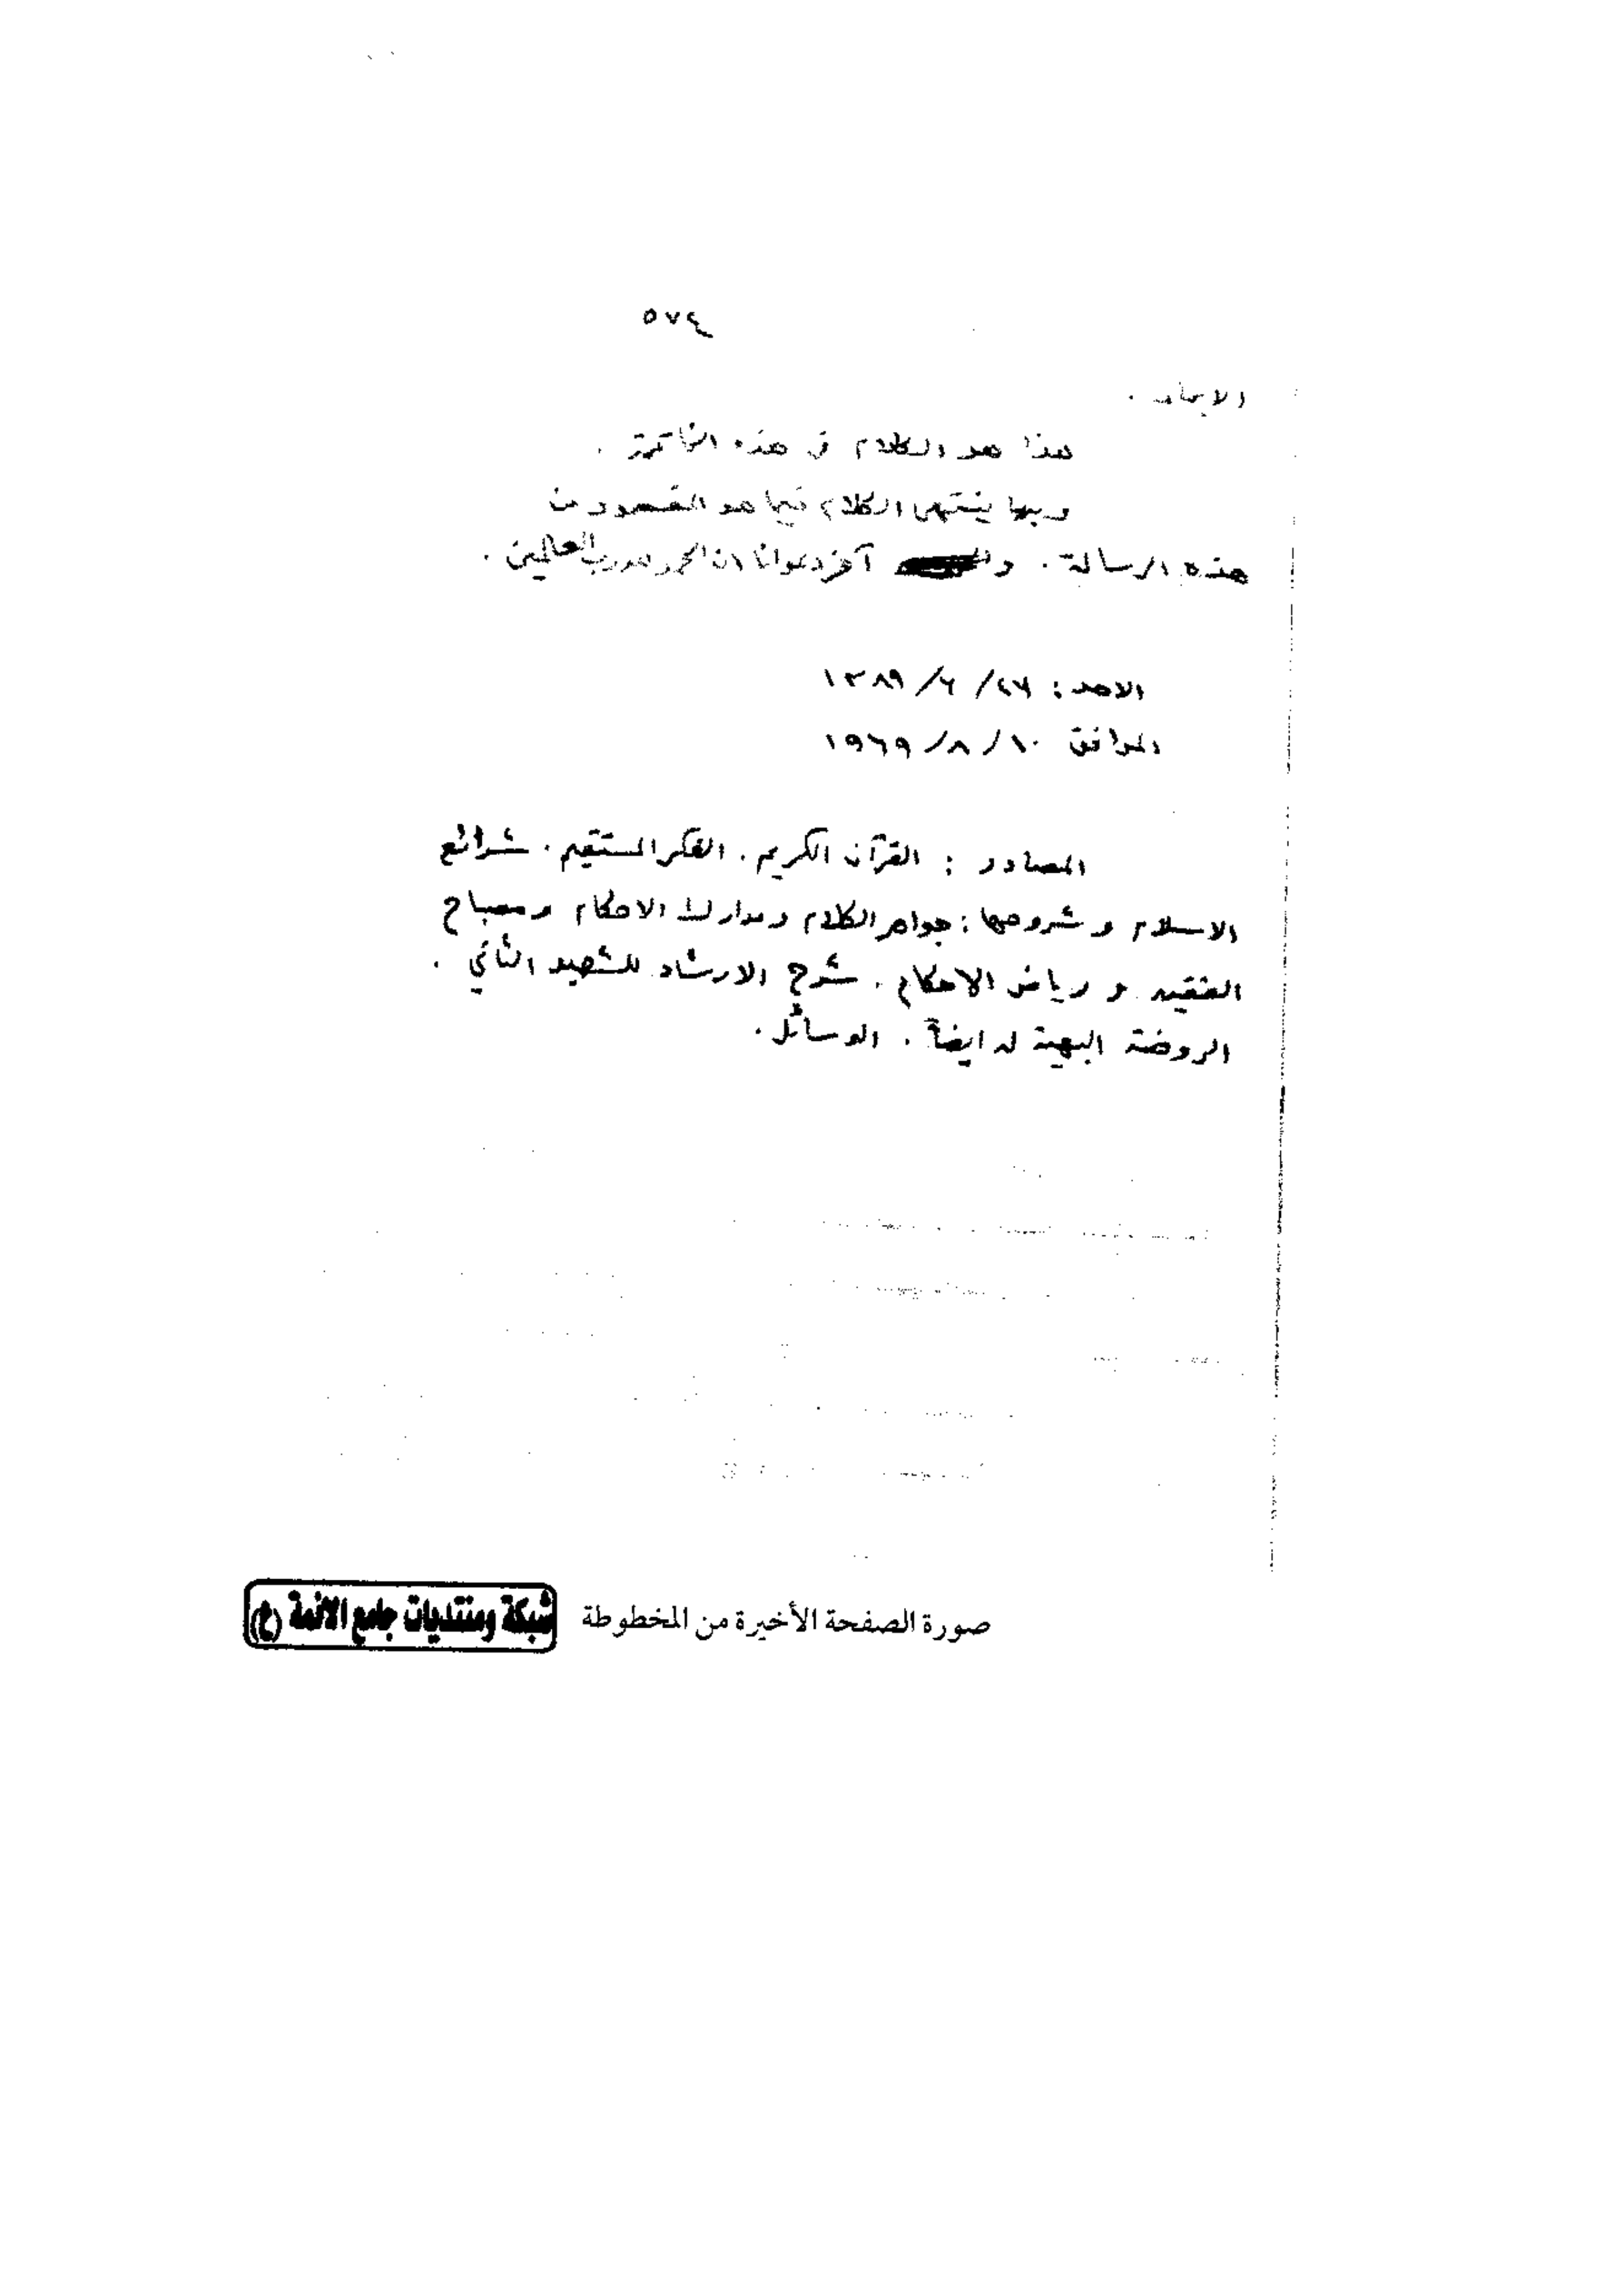 ٥٧٤
الايجاد .
هذا هو الكلام في هذه الخاتمة .
وبها ينتهي الكلام فيما هو المقصود من
هذه الرسالة . و آخر دعوانا ان الحمد لله رب العالمين .
الاحد : ٢٧ / ٦ / ١٣٨٩
الموافق ١٠ / ٨ / ١٩٦٩
المصادر : القرآن الكريم . الفكر المستقيم . شرائع
الاسلام وشروحها : جواهر الكلام ومدارك الاحكام ومصباح
الفقيه و رياض الاحكام . شرح الارشاد للشهيد الثاني .
الروضة البهية له ايضاً . الوسائل .
صورة الصفحة الأخيرة من المخطوطة
شبكة ومنتديات جامع الائمة (ع)